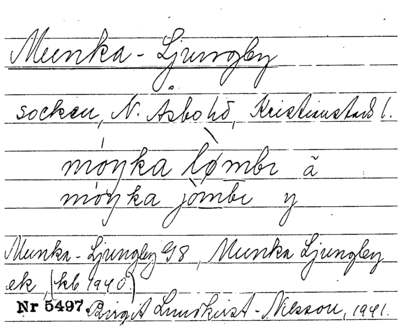 Munka-Ljungby
socken, N. Åsbo hd, Kristianstads l.
móŋka lømbı ã
móŋka jòmbı y
Munka-Ljungby G8, Munka Ljungby
ek, (kb 1940)
Nr 5497. Birgit Lundkvist-Nilsson, 1941.